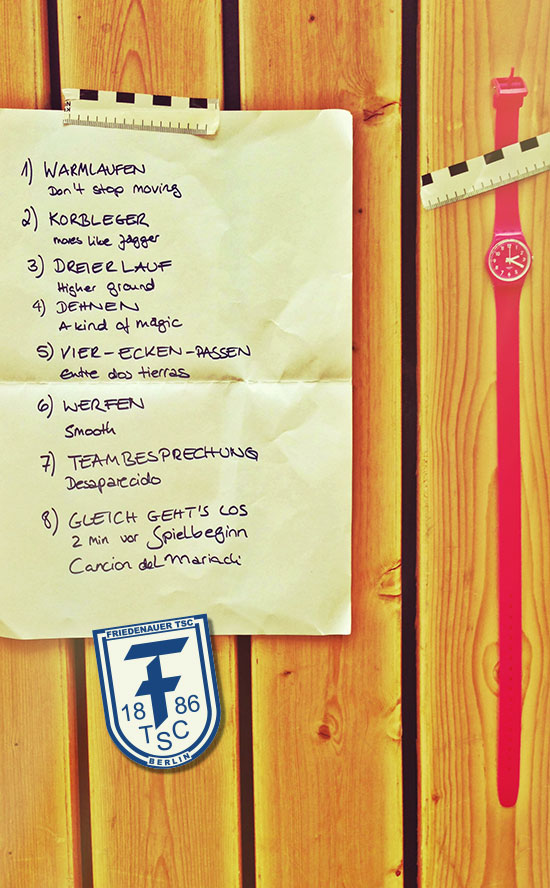 1) WARMLAUFEN
Don't stop moving
2) KORBLEGER
moves like Jagger
3) DREIERLAUF
Higher ground
4) DEHNEN
A kind of magic
5) VIER-ECKEN-PASSEN
Entre dos tierras
6) WERFEN
Smooth
7) TEAMBESPRECHUNG
Desaparecido
8) GLEICH GEHT'S LOS
2 min vor Spielbeginn
Cancion del Mariachi
FRIEDENAUER TSC
F
18 86
TSC
BERLIN